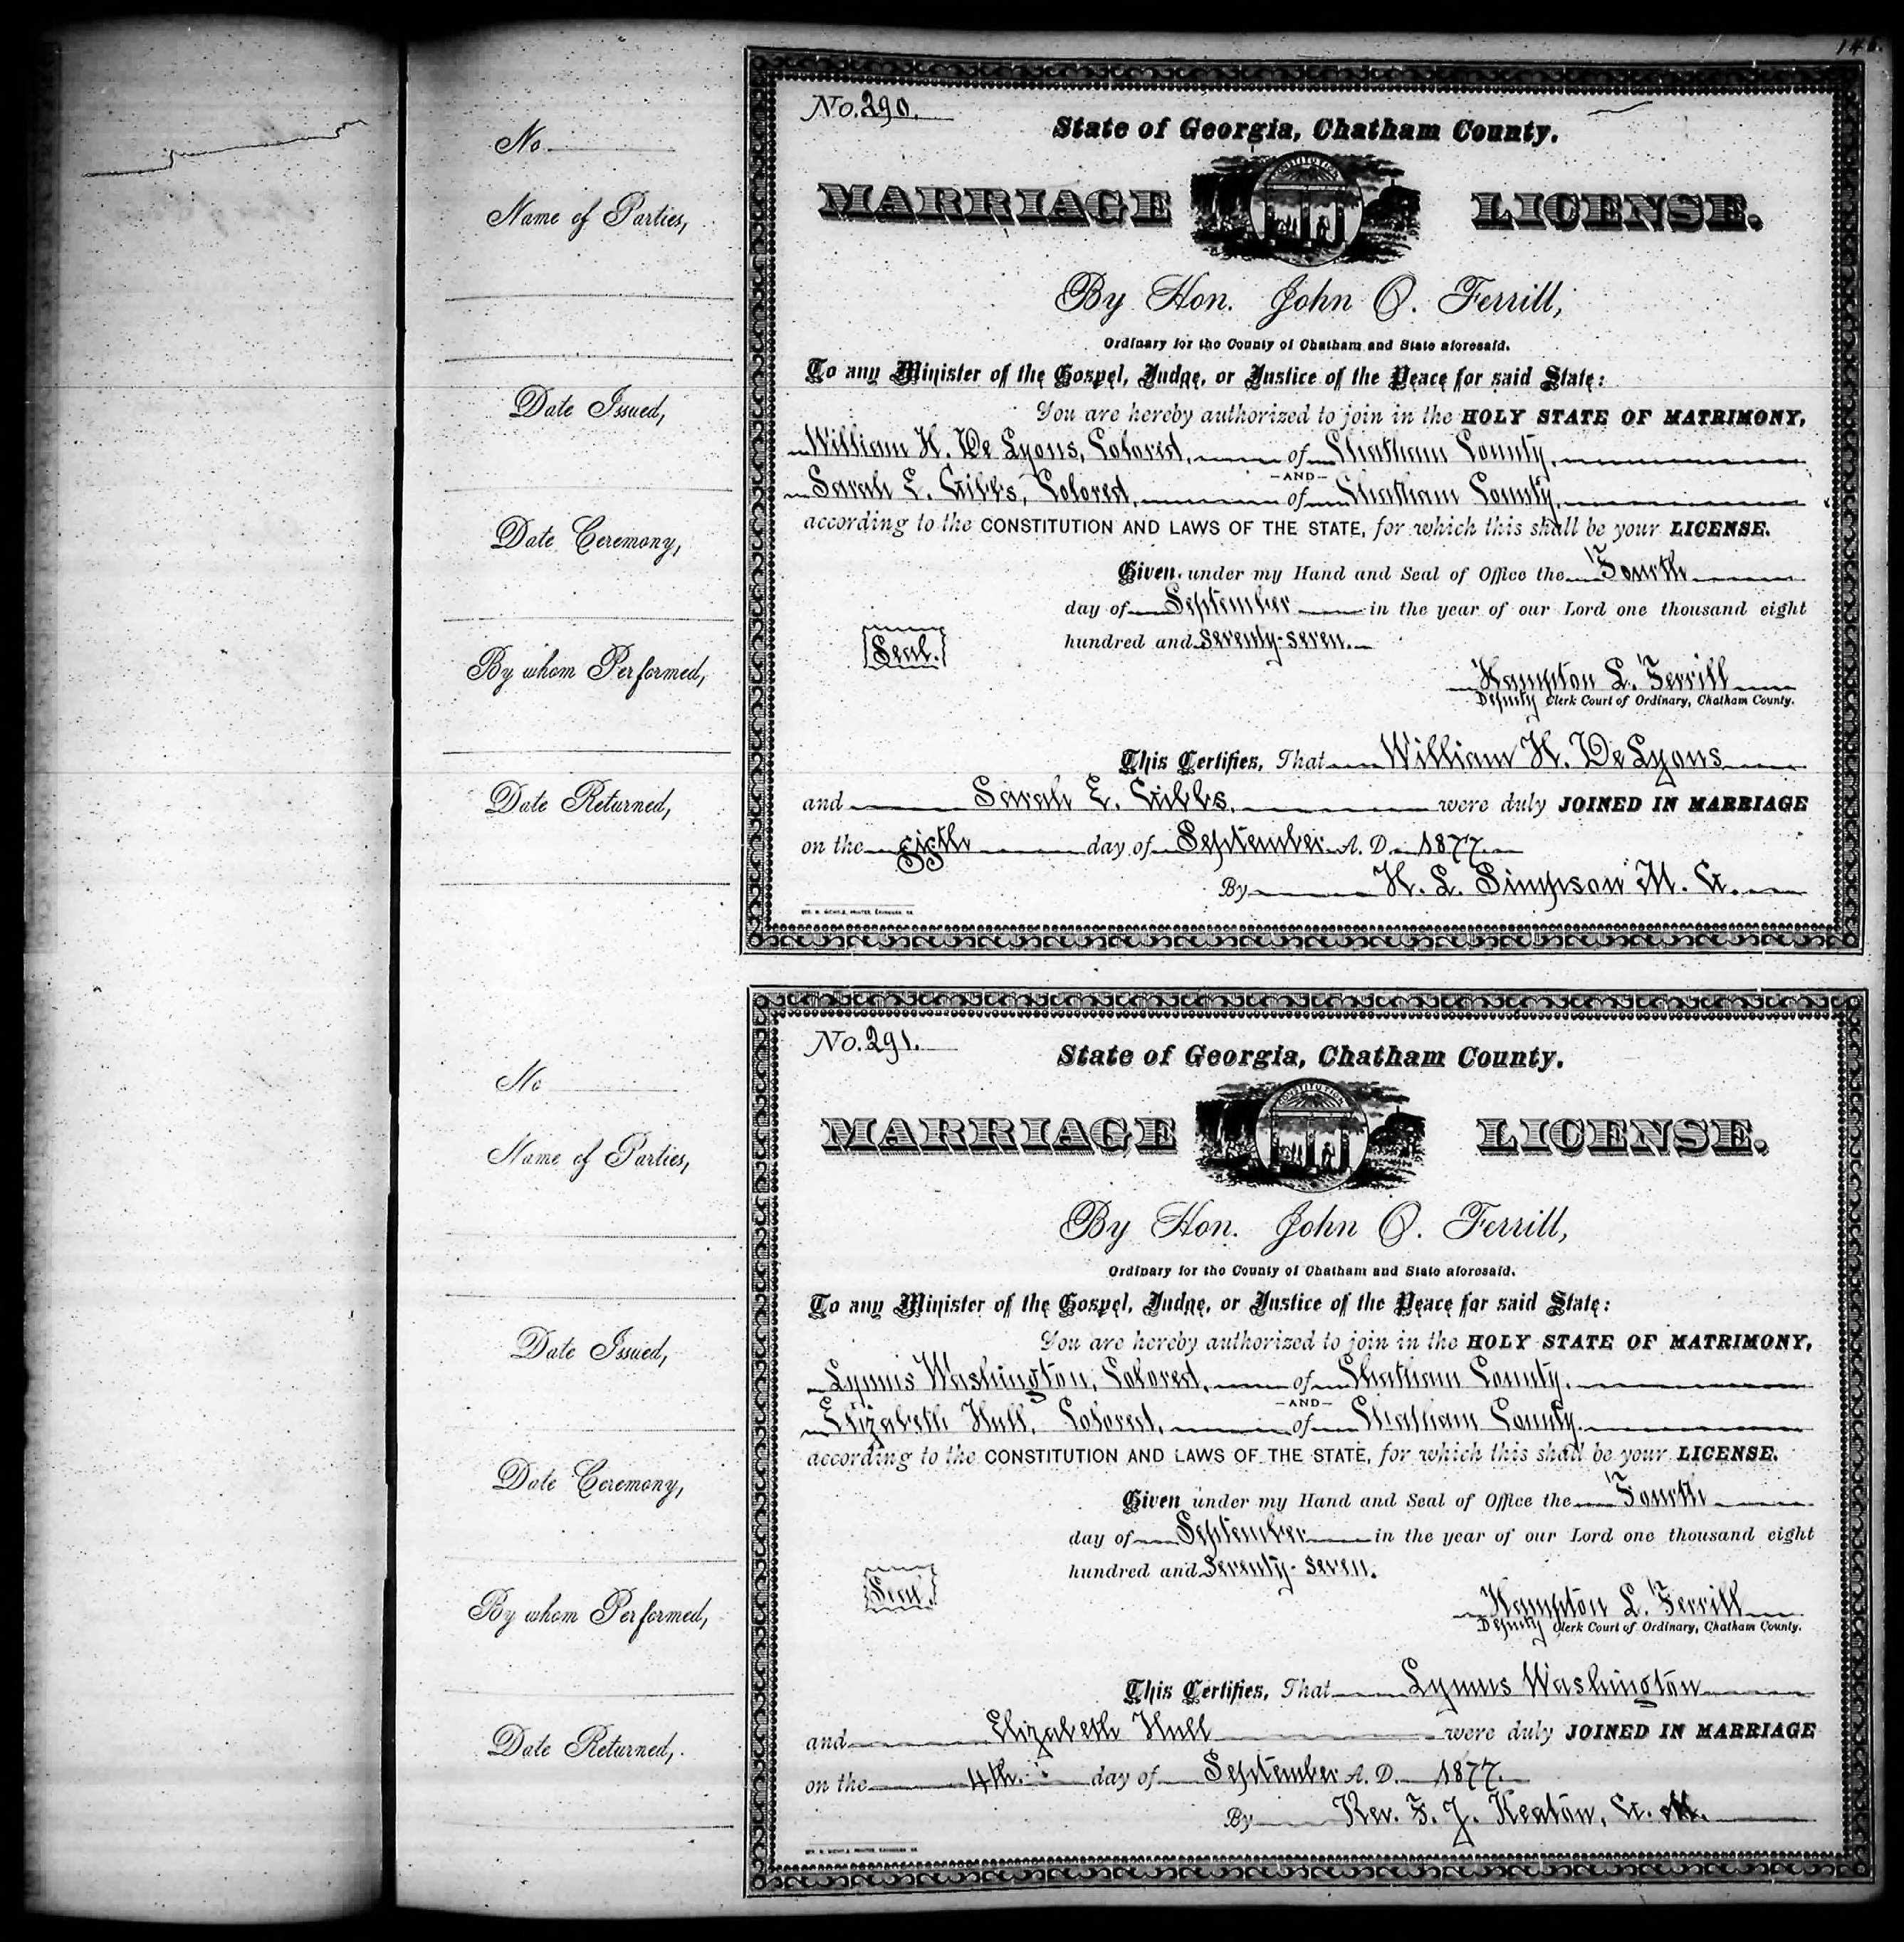 146.
No.
Name of Parties,
Date Issued,
Date Ceremony,
By whom Performed,
Date Returned,
No. 290.
State of Georgia, Chatham County.
MARRIAGE LICENSE.
By Hon. John O. Ferrill,
Ordinary for the County of Chatham and State aforesaid.
To any Minister of the Gospel, Judge, or Justice of the Peace for said State:
You are hereby authorized to join in the HOLY STATE OF MATRIMONY,
William H. De Lyons, Colored, of Chatham County,
-AND-
Sarah E. Gibbs, Colored, of Chatham County,
according to the CONSTITUTION AND LAWS OF THE STATE, for which this shall be your LICENSE.
Given under my Hand and Seal of Office the Fourth
day of September in the year of our Lord one thousand eight
hundred and seventy-seven.
Seal.
Hampton L. Ferrill
Deputy Clerk Court of Ordinary, Chatham County.
This Certifies, That William H. De Lyons
and Sarah E. Gibbs, were duly JOINED IN MARRIAGE
on the day of September A. D. 1877.
By H. L. Simpson M. G.
No.
Name of Parties,
Date Issued,
Date Ceremony,
By whom Performed,
Date Returned,
No. 291.
State of Georgia, Chatham County.
MARRIAGE LICENSE.
CONSTITUTION
By Hon. John O. Ferrill,
Ordinary for the County of Chatham and State aforesaid.
To any Minister of the Gospel, Judge, or Justice of the Peace for said State:
You are hereby authorized to join in the HOLY STATE OF MATRIMONY,
Lymus Washington, Colored, of Chatham County,
-AND-
Elizabeth Hull, Colored, of Chatham County,
according to the CONSTITUTION AND LAWS OF THE STATE, for which this shall be your LICENSE.
Given under my Hand and Seal of Office the Fourth
day of September in the year of our Lord one thousand eight
hundred and seventy-seven.
Seal.
Hampton L. Ferrill
Deputy Clerk Court of Ordinary, Chatham County.
This Certifies, That Lymus Washington
and Elizabeth Hull were duly JOINED IN MARRIAGE
on the 4th. day of September A. D. 1877.
By Rev. F. J. Keaton, G. M.